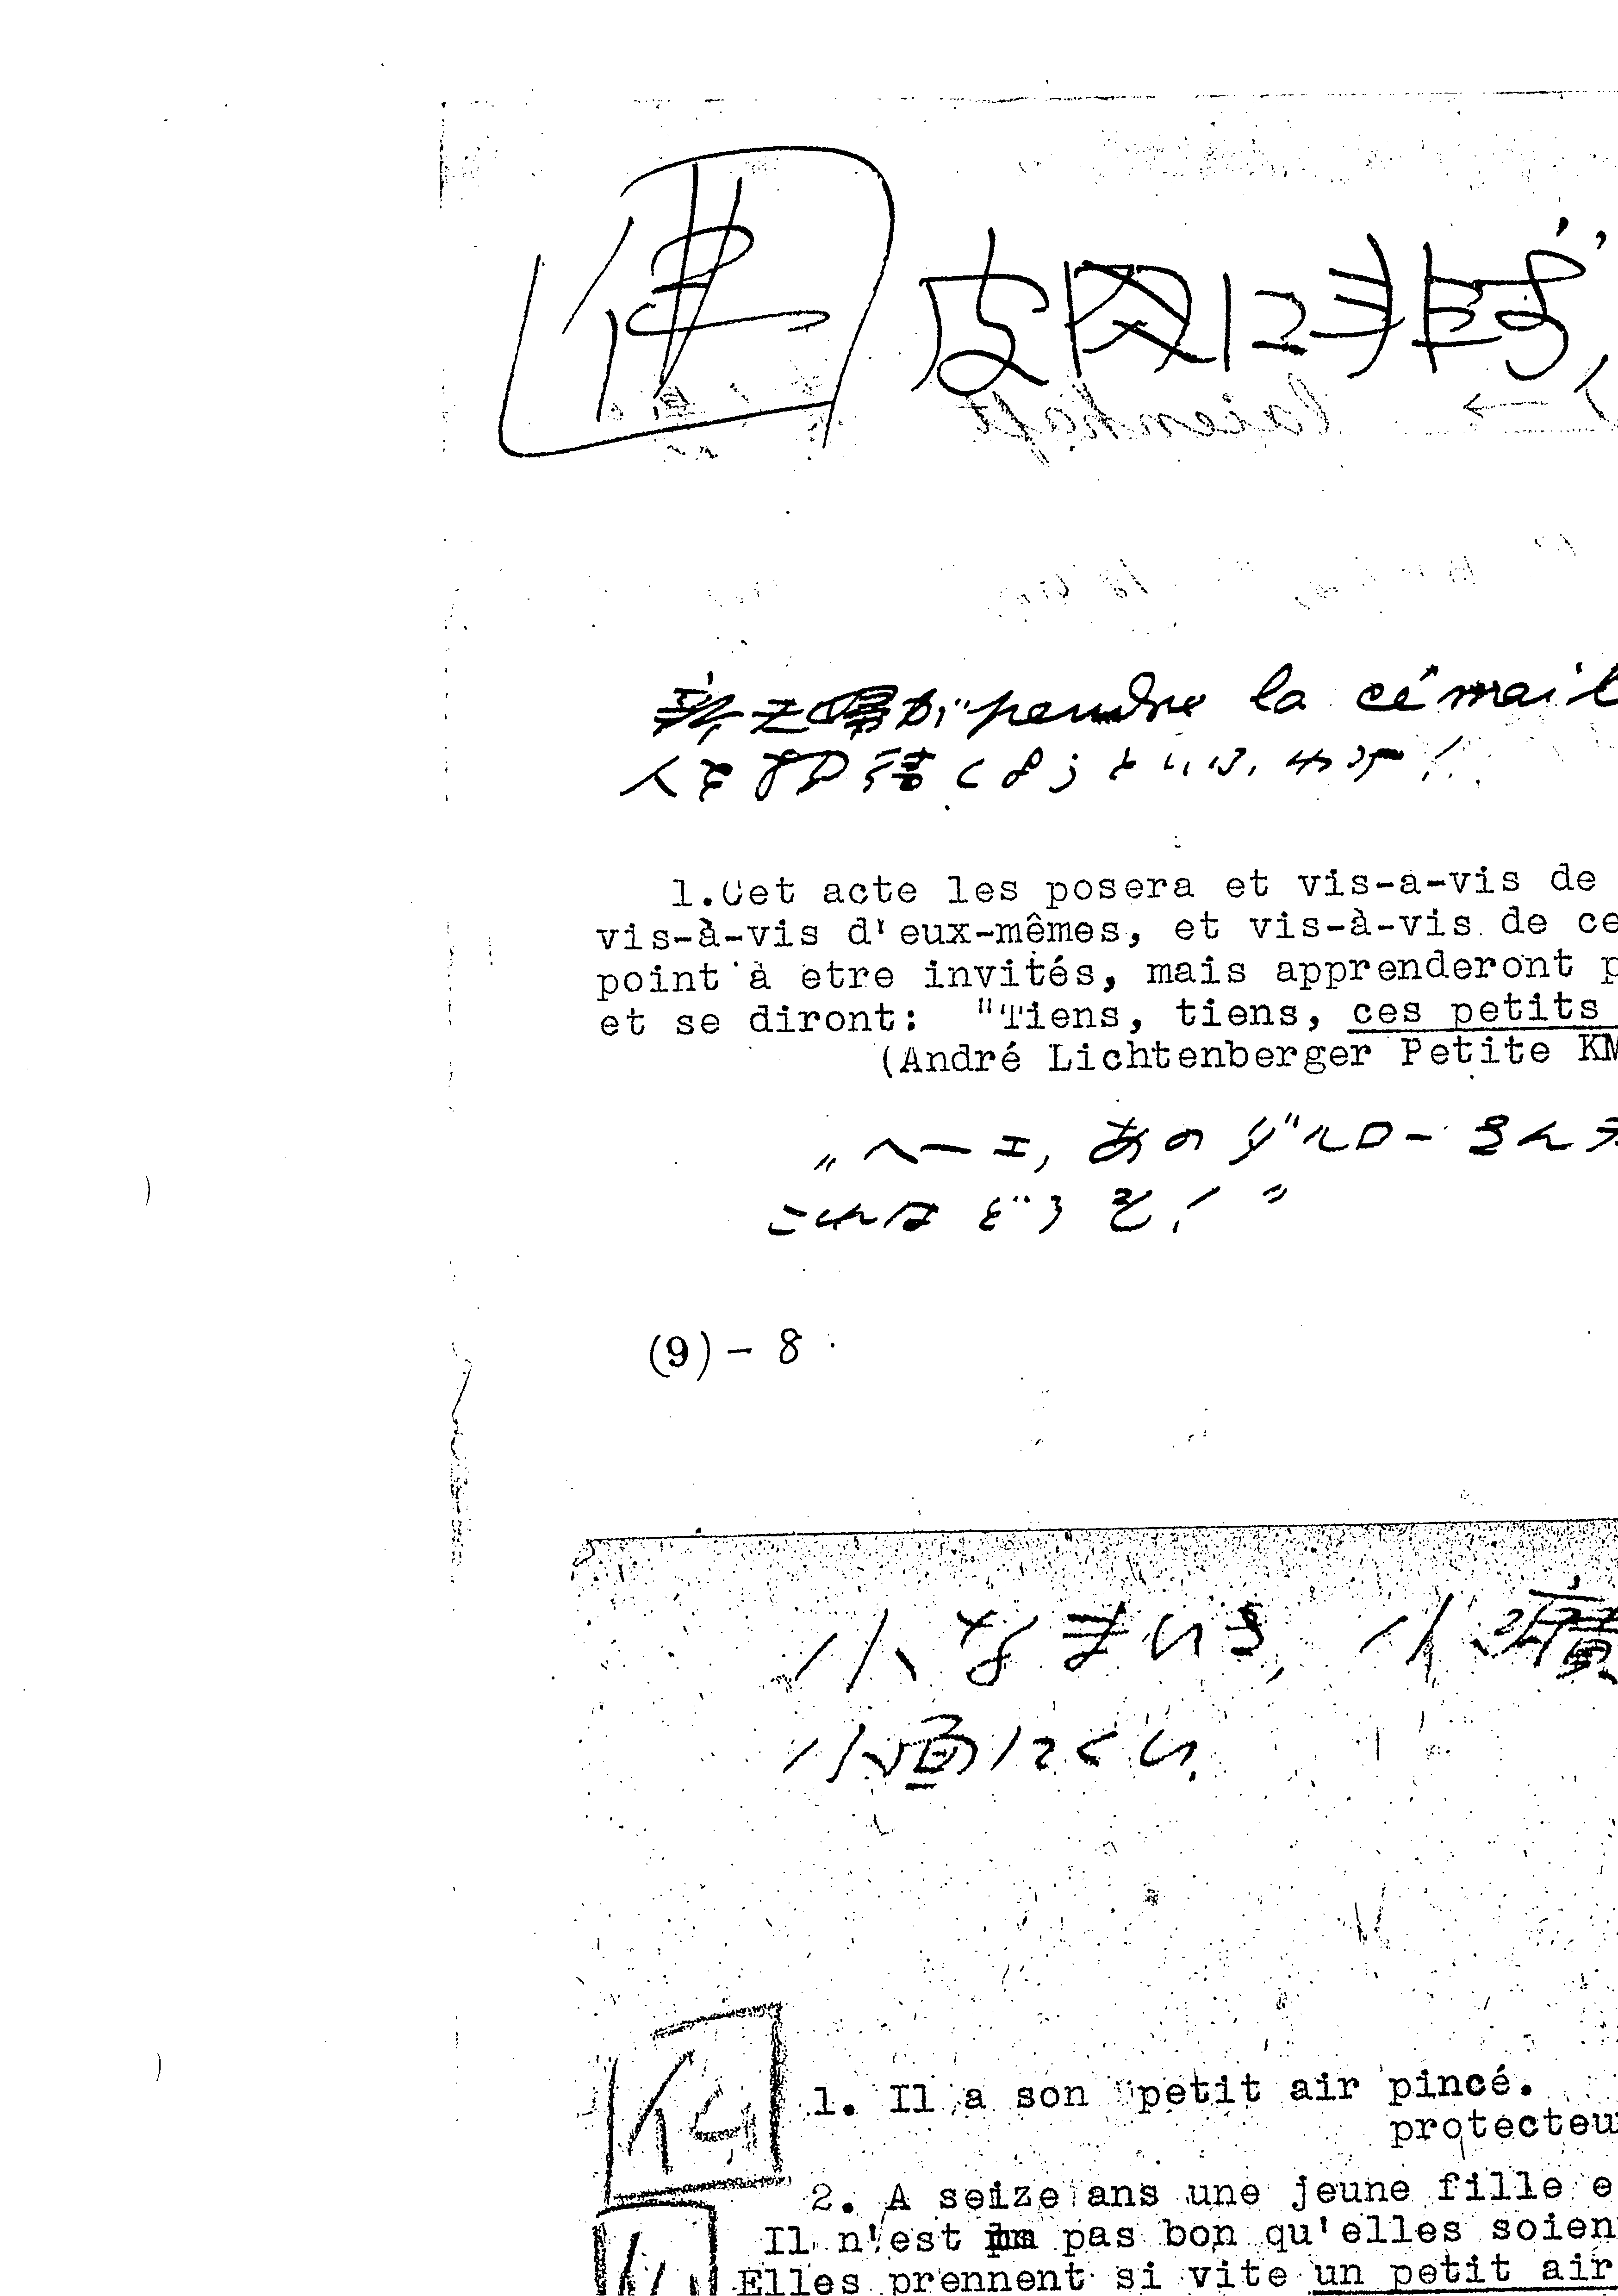 皮肉に非ず,
laienhaft
新立場が pendre la cémail
人を招待しようといふ, わけ!
1.Cet acte les posera et vis-a-vis de
vis-à-vis d'eux-mêmes, et vis-à-vis de ce
point à etre invités, mais apprenderont p
et se diront: "Tiens, tiens, ces petits
(André Lichtenberger Petite KM
„ヘーエ, あのダルローさんが
これはどうぞ! "
(9)-8
小なまいき, 小癪
小面にくい.
1. Il a son petit air pincé.
protecteu
2. A seize ans une jeune fille e
Il n'est pas bon qu'elles soien
Elles prennent si vite un petit air